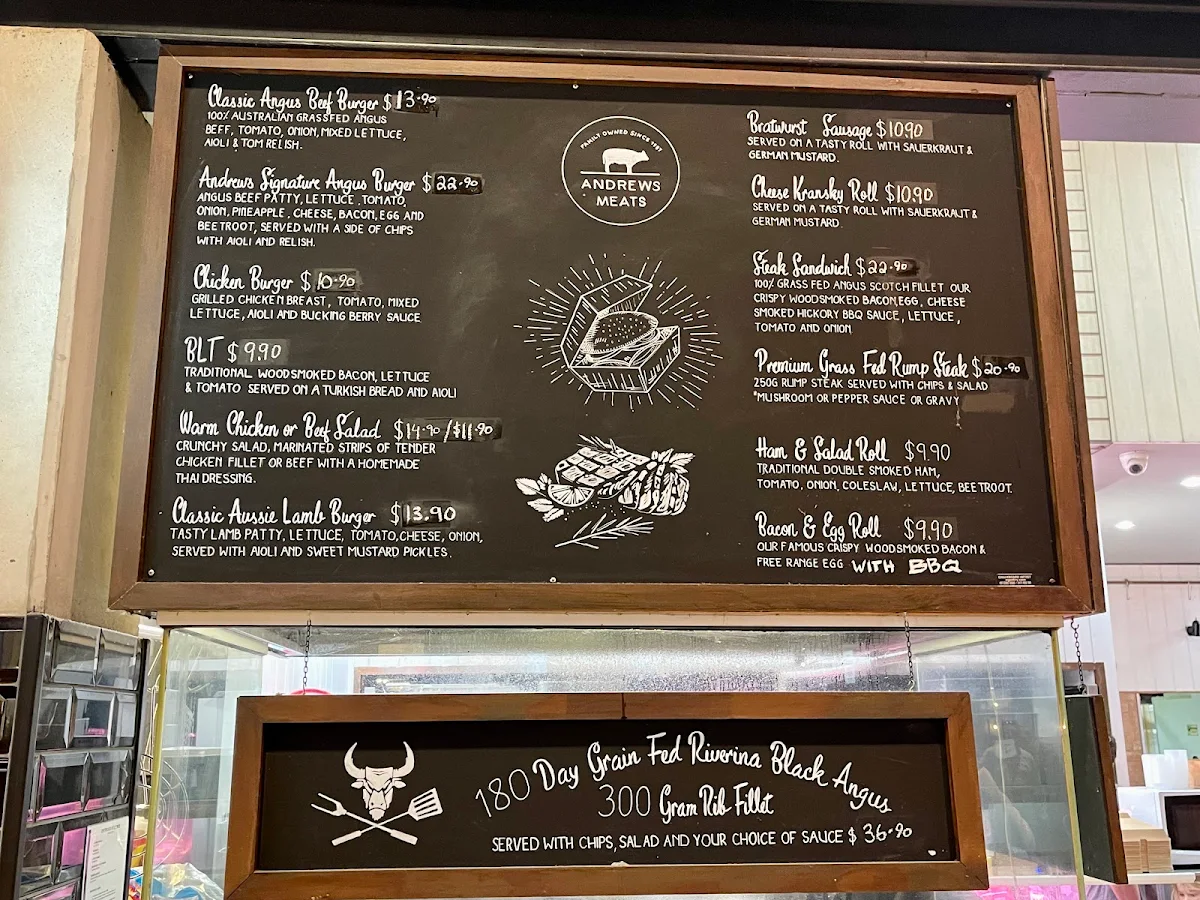 Classic Angus Beef Burger $13.90
100% AUSTRALIAN GRASSFED ANGUS
BEEF, TOMATO, ONION, MIXED LETTUCE,
AIOLI & TOM RELISH.
Andrews Signature Angus Burger $22.90
ANGUS BEEF PATTY, LETTUCE, TOMATO,
ONION, PINEAPPLE, CHEESE, BACON, EGG AND
BEETROOT, SERVED WITH A SIDE OF CHIPS
WITH AIOLI AND RELISH.
Chicken Burger $10.90
GRILLED CHICKEN BREAST, TOMATO, MIXED
LETTUCE, AIOLI AND BUCKING BERRY SAUCE
BLT $9.90
TRADITIONAL WOODSMOKED BACON, LETTUCE
& TOMATO SERVED ON A TURKISH BREAD AND AIOLI
Warm Chicken or Beef Salad $14.90/$11.90
CRUNCHY SALAD, MARINATED STRIPS OF TENDER
CHICKEN FILLET OR BEEF WITH A HOMEMADE
THAI DRESSING.
Classic Aussie Lamb Burger $13.90
TASTY LAMB PATTY, LETTUCE, TOMATO, CHEESE, ONION,
SERVED WITH AIOLI AND SWEET MUSTARD PICKLES.
FAMILY OWNED SINCE
ANDREWS
MEATS
Bratwurst Sausage $10.90
SERVED ON A TASTY ROLL WITH SAUERKRAUT &
GERMAN MUSTARD.
Cheese Kransky Roll $10.90
SERVED ON A TASTY ROLL WITH SAUERKRAUT &
GERMAN MUSTARD.
Steak Sandwich $22.90
100% GRASS FED ANGUS SCOTCH FILLET OUR
CRISPY WOODSMOKED BACON, EGG, CHEESE
SMOKED HICKORY BBQ SAUCE, LETTUCE,
TOMATO AND ONION
Premium Grass Fed Rump Steak $20.90
250G RUMP STEAK SERVED WITH CHIPS & SALAD
*MUSHROOM OR PEPPER SAUCE OR GRAVY
Ham & Salad Roll $9.90
TRADITIONAL DOUBLE SMOKED HAM,
TOMATO, ONION, COLESLAW, LETTUCE, BEETROOT.
Bacon & Egg Roll $9.90
OUR FAMOUS CRISPY WOODSMOKED BACON &
FREE RANGE EGG WITH BBQ
180 Day Grain Fed Riverina Black Angus
300 Gram Rib Fillet
SERVED WITH CHIPS, SALAD AND YOUR CHOICE OF SAUCE $36.90